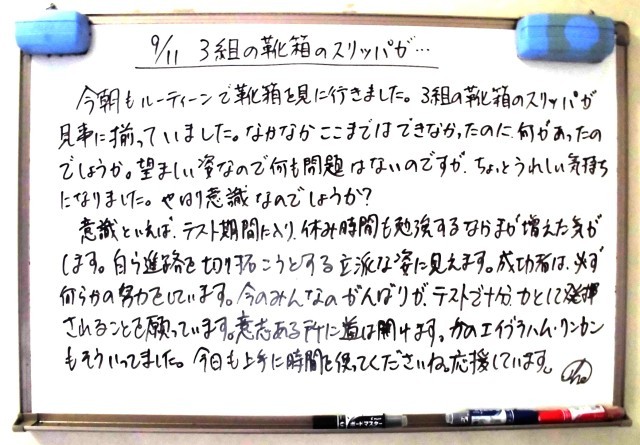 9/11 3組の靴箱のスリッパが…
今朝もルーティーンで靴箱を見に行きました。3組の靴箱のスリッパが
見事に揃っていました。なかなかここまではできなかったのに、何があったの
でしょうか。望ましい姿なので何も問題はないのですが、ちょっとうれしい気持ち
になりました。やはり意識なのでしょうか?
意識といえば、テスト期間に入り、休み時間も勉強するなかまが増えた気が
します。自ら進路を切り拓こうとする立派な姿に見えます。成功者は、必ず
何らかの努力をしています。今のみんなのがんばりが、テストで十分、力として発揮
されることを願っています。意志ある所に道は開けます。かのエイブラハム・リンカン
もそういってました。今日も上手に時間を使ってくださいね。応援しています。
ボードマスター